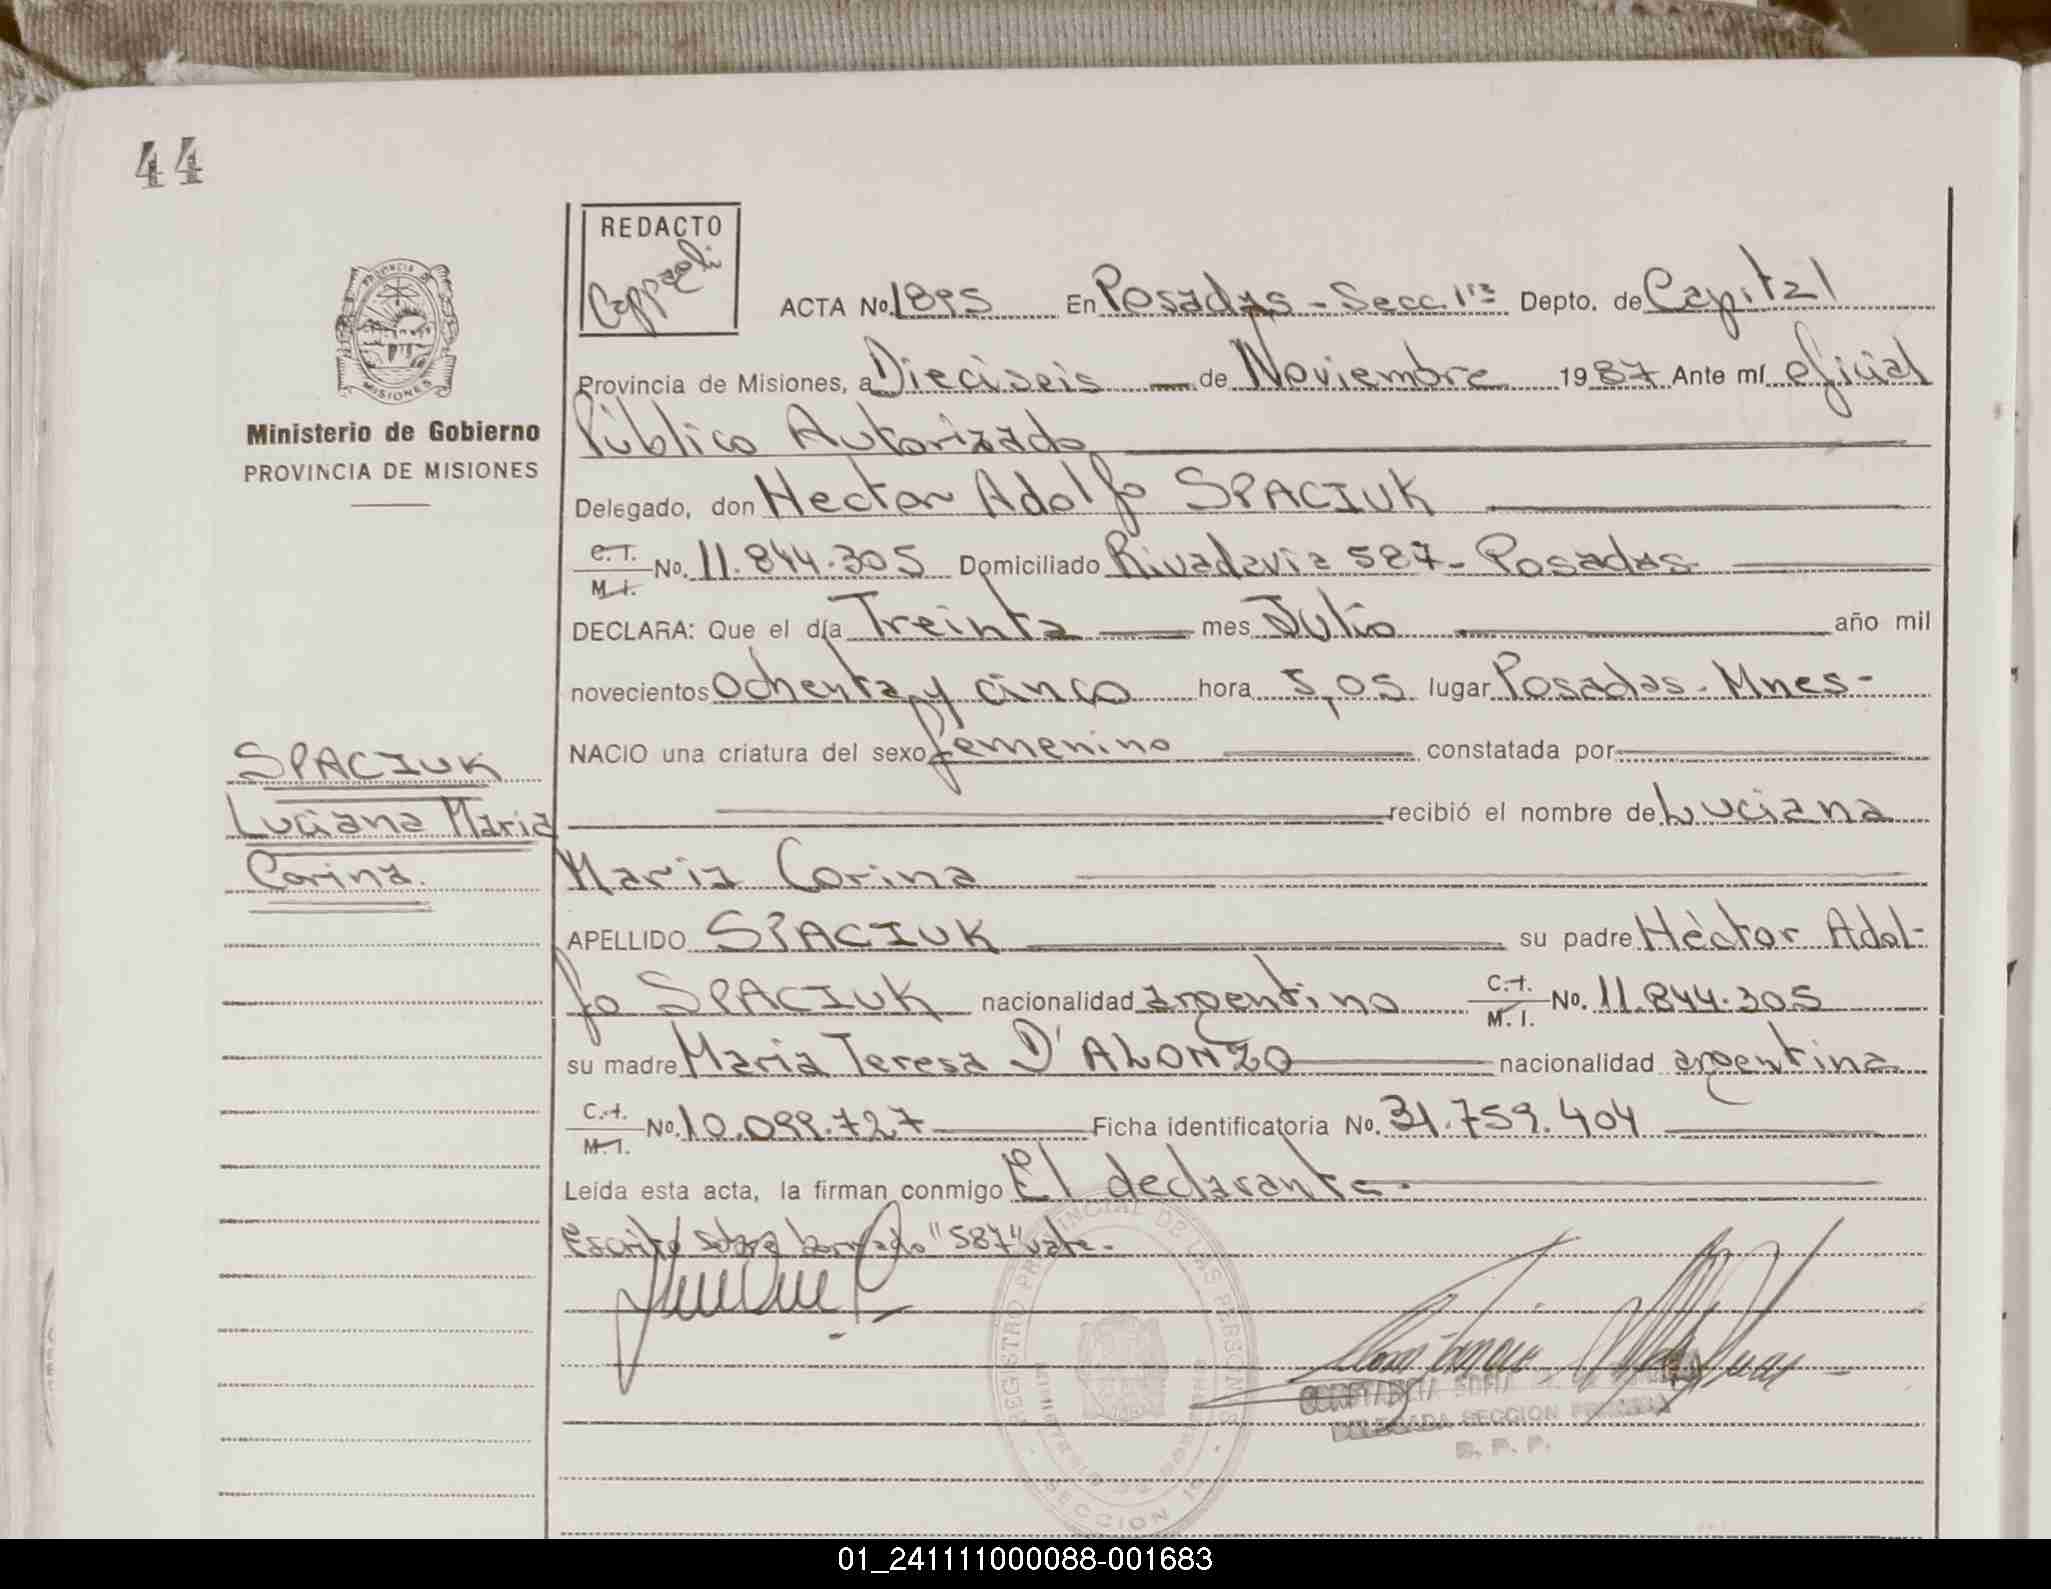 44
REDACTO
Coppaoli
PROVINCIA DE MISIONES
Ministerio de Gobierno
PROVINCIA DE MISIONES
ACTA No. 1895 En Posadas - Secc. 1ra Depto. de Capital
Provincia de Misiones, a Dieciseis de Noviembre 1987 Ante mí oficial
Público Autorizado
Delegado, don Hector Adolfo SPACIUK
C.I.
M.I. No. 11.844.305 Domiciliado Rivadavia 587 - Posadas
DECLARA: Que el día Treinta mes Julio año mil
novecientos ochenta y cinco hora 5,05 lugar Posadas - Mnes -
NACIO una criatura del sexo femenino constatada por
recibió el nombre de Luciana
Maria Corina
SPACIUK
Luciana Maria
Corina.
APELLIDO SPACIUK su padre Héctor Adol-
fo SPACIUK nacionalidad argentino C.I.
M.I. No. 11.844.305
su madre Maria Teresa D'ALONZO nacionalidad argentina
C.I.
M.I. No. 10.099.727 Ficha identificatoria No. 31.759.404
Leída esta acta, la firman conmigo El declarante.
Escrito sobre borrado "587" vale.
REGISTRO PROVINCIAL DE LAS PERSONAS
SECCION 1a
CONSTANCIA SOFIA
DELEGADA SECCION PRIMERA
R. P. P.
01_241111000088-001683